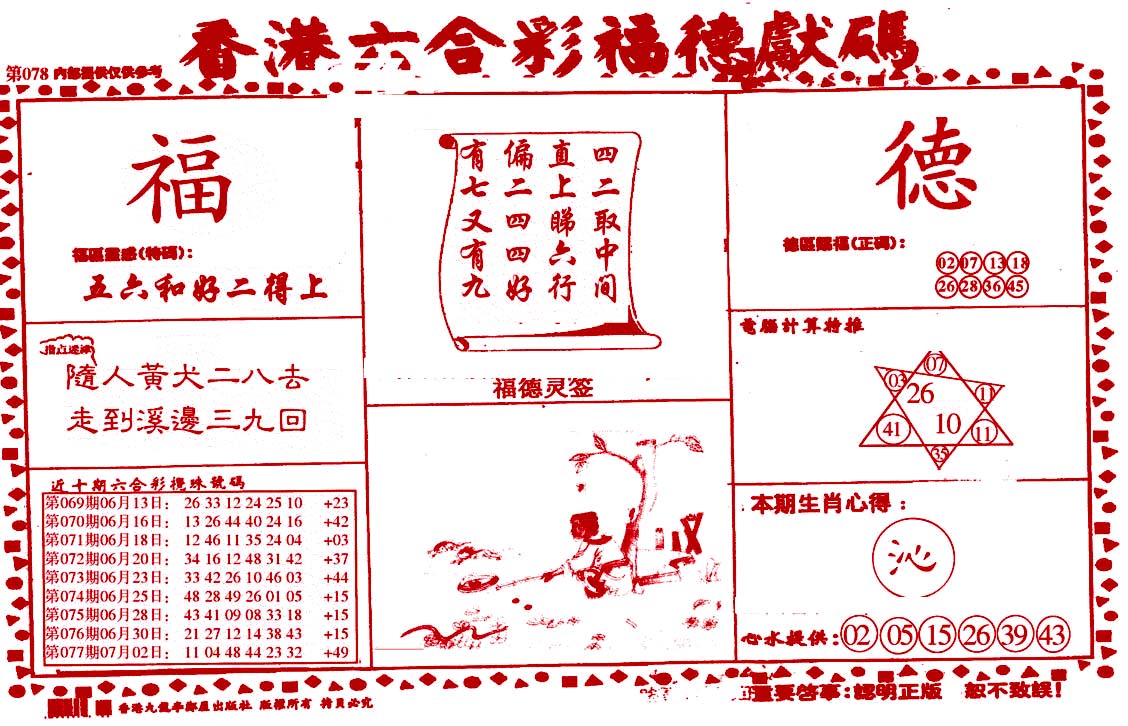 香港六合彩福德獻碼
第078 内部提供仅供参考
福
福區靈感(特碼):
五六和好二得上
指点迷津
隨人黃犬二八去
走到溪邊三九回
近十期六合彩攪珠號碼
第069期06月13日: 26 33 12 24 25 10 +23
第070期06月16日: 13 26 44 40 24 16 +42
第071期06月18日: 12 46 11 35 24 04 +03
第072期06月20日: 34 16 12 48 31 42 +37
第073期06月23日: 33 42 26 10 46 03 +44
第074期06月25日: 48 28 49 26 01 05 +15
第075期06月28日: 43 41 09 08 33 18 +15
第076期06月30日: 21 27 12 14 38 43 +15
第077期07月02日: 11 04 48 44 23 32 +49
四二取中间
直上睇六行
偏二四四好
有七又有九
福德灵签
德
德區賜福(正碼):
02 07 13 18
26 28 36 45
電腦計算特推
07
03 26 11
41 10 11
35
本期生肖心得:
沁
心水提供: 02 05 15 26 39 43
重要啓事:認明正版 恕不致誤!
出版社 版權所有 拷貝必究